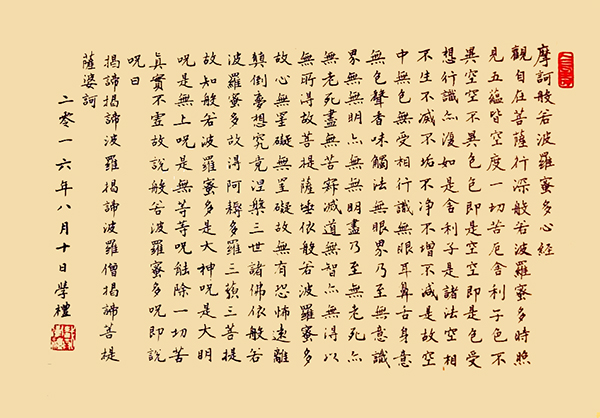 摩訶般若波羅蜜多心經
觀自在菩薩行深般若波羅蜜多時照
見五蘊皆空度一切苦厄舍利子色不
異空空不異色色即是空空即是色受
想行識亦復如是舍利子是諸法空相
不生不滅不垢不淨不增不減是故空
中無色無受相行識無眼耳鼻舌身意
無色聲香味觸法無眼界乃至無意識
界無無明亦無無明盡乃至無老死亦
無老死盡無苦集滅道無智亦無得以
無所得故菩提薩埵依般若波羅蜜多
故心無罣礙無罣礙故無有恐怖遠離
顛倒夢想究竟涅槃三世諸佛依般若
波羅蜜多故得阿耨多羅三藐三菩提
故知般若波羅蜜多是大神呪是大明
呪是無上呪是無等等呪能除一切苦
真實不虛故說般若波羅蜜多呪即說
呪曰
揭諦揭諦波羅揭諦波羅僧揭諦菩提
薩婆訶
二零一六年八月十日学禮